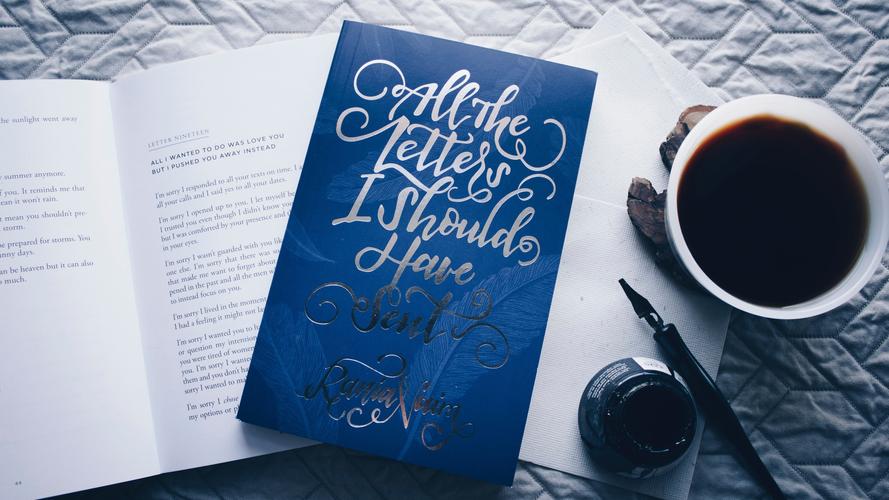 he sunlight went away
summer anymore.
you. It reminds me that
ean it won't rain.
mean you shouldn't pre-
storm.
be prepared for storms. You
nny days.
an be heaven but it can also
o much.
44
LETTER NINETEEN
ALL I WANTED TO DO WAS LOVE YOU
BUT I PUSHED YOU AWAY INSTEAD
I'm sorry I responded to all your texts on time. I
all your calls and I said yes to all your dates.
I'm sorry I opened up to you. I let myself be
I trusted you even though I didn't know you
but I was comforted by your presence and
in your eyes.
I'm sorry I wasn't guarded with you lik
one else. I'm sorry that there was so
that made me want to forget about
pened in the past and all the men w
to instead focus on you.
I'm sorry I lived in the moment
I had a feeling it might not la
I'm sorry I wanted you to
or question my intention
you were tired of women
you. I'm sorry I wante
them and you don't ha
sorry I wanted to ma
I'm sorry I chose
my options or p
All the
Letters
I Should
Have
Sent
Rania Naim